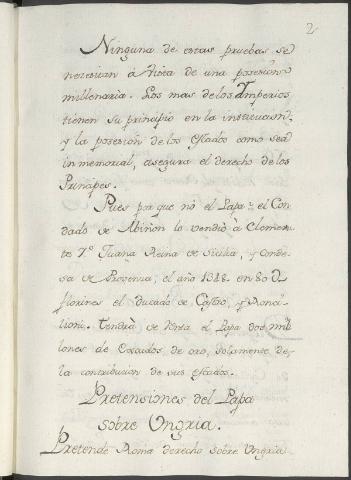 2
Ninguna de estas pruebas se
necesitan á vista de una posesion
millenaria. Los mas de los Imperios
tienen su principio en la
y la posesion de los estados como sea
inmemorial, asegura el derecho de los
Principes.
Pues porque no el Papa? el Con
dado de Abiñon lo vendiò à Clemen-
te 7º Juana Reina de Sicilia, y Conde-
sa de Provenza, el año 1348. en 80 
florines el ducado de Castro, y Ronci-
lioni. Tendrà de renta el Papa dos mil
lones de Escudos de oro, solamente de
la contribucion de sus estados.
Pretensiones del Papa
sobre Ungria.
Pretende Roma derecho sobre Ungria